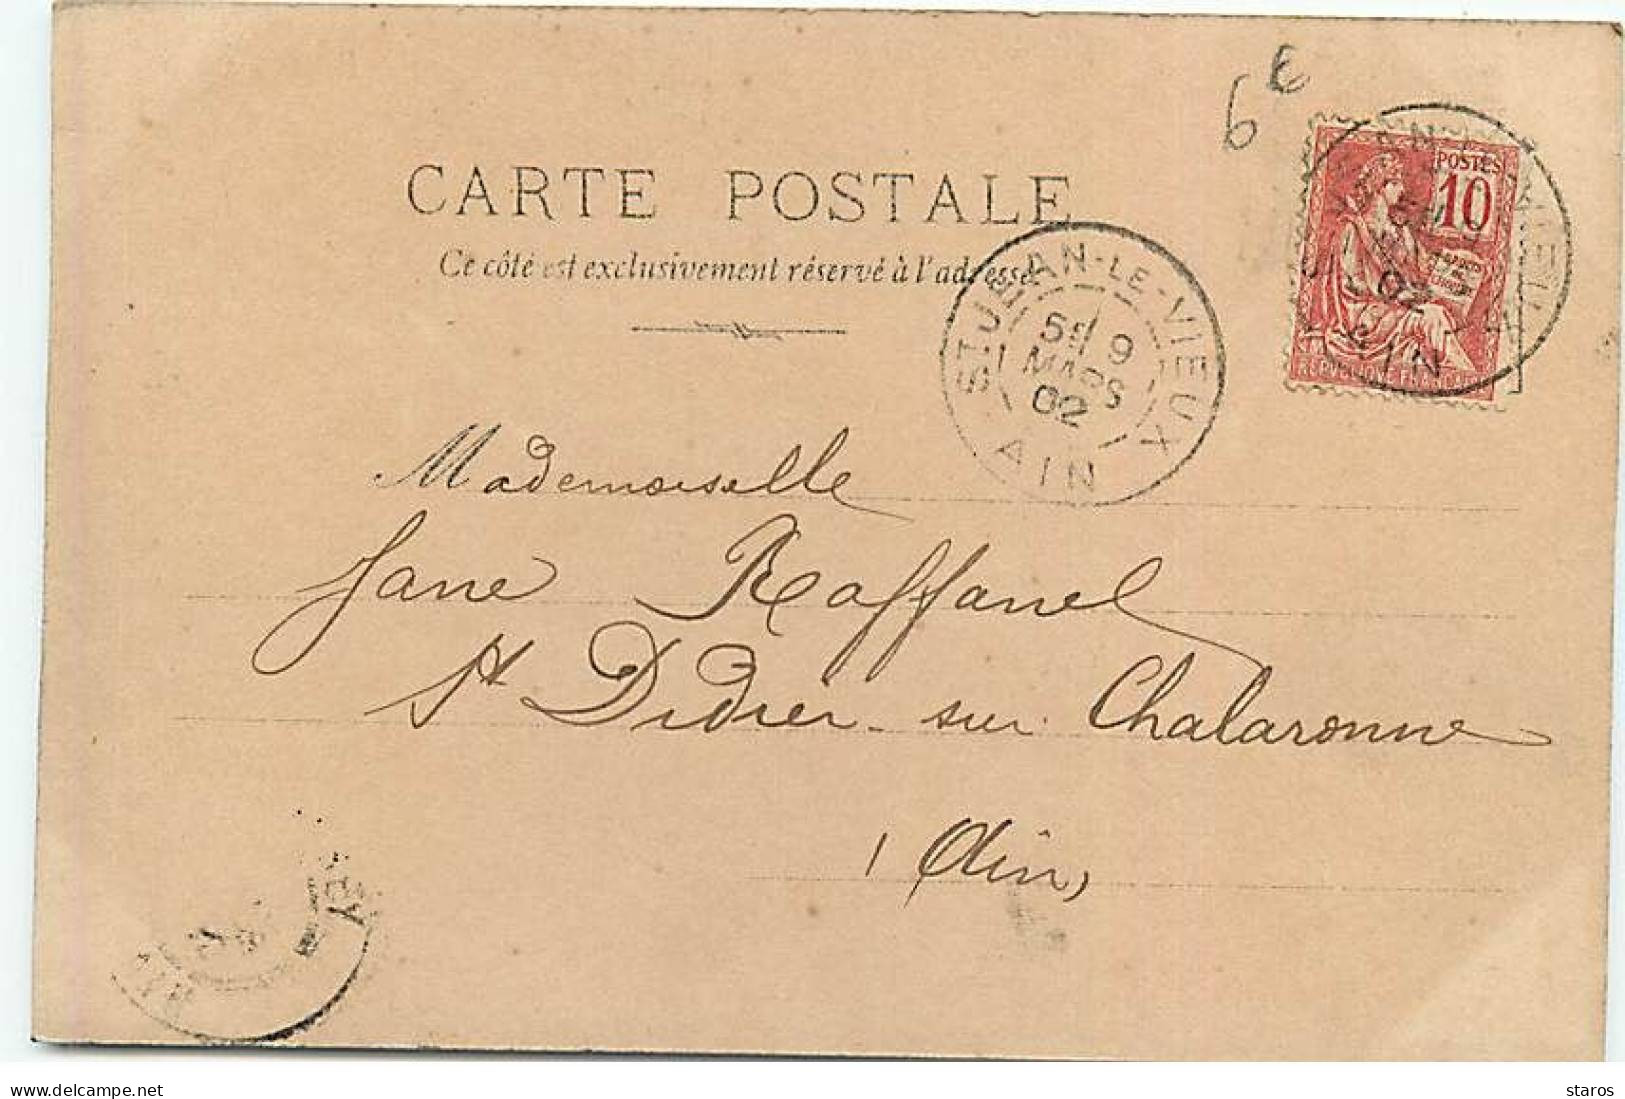 6 €
CARTE POSTALE
Ce côté est exclusivement réservé à l'adresse
POSTES
10
REPUBLIQUE FRANÇAISE
ST JEAN-LE-VIEUX
9
MARS
02
AIN
Mademoiselle
Jane Raffanel
St Didier sur Chalaronne
(Ain)
www.delcampe.net
staros